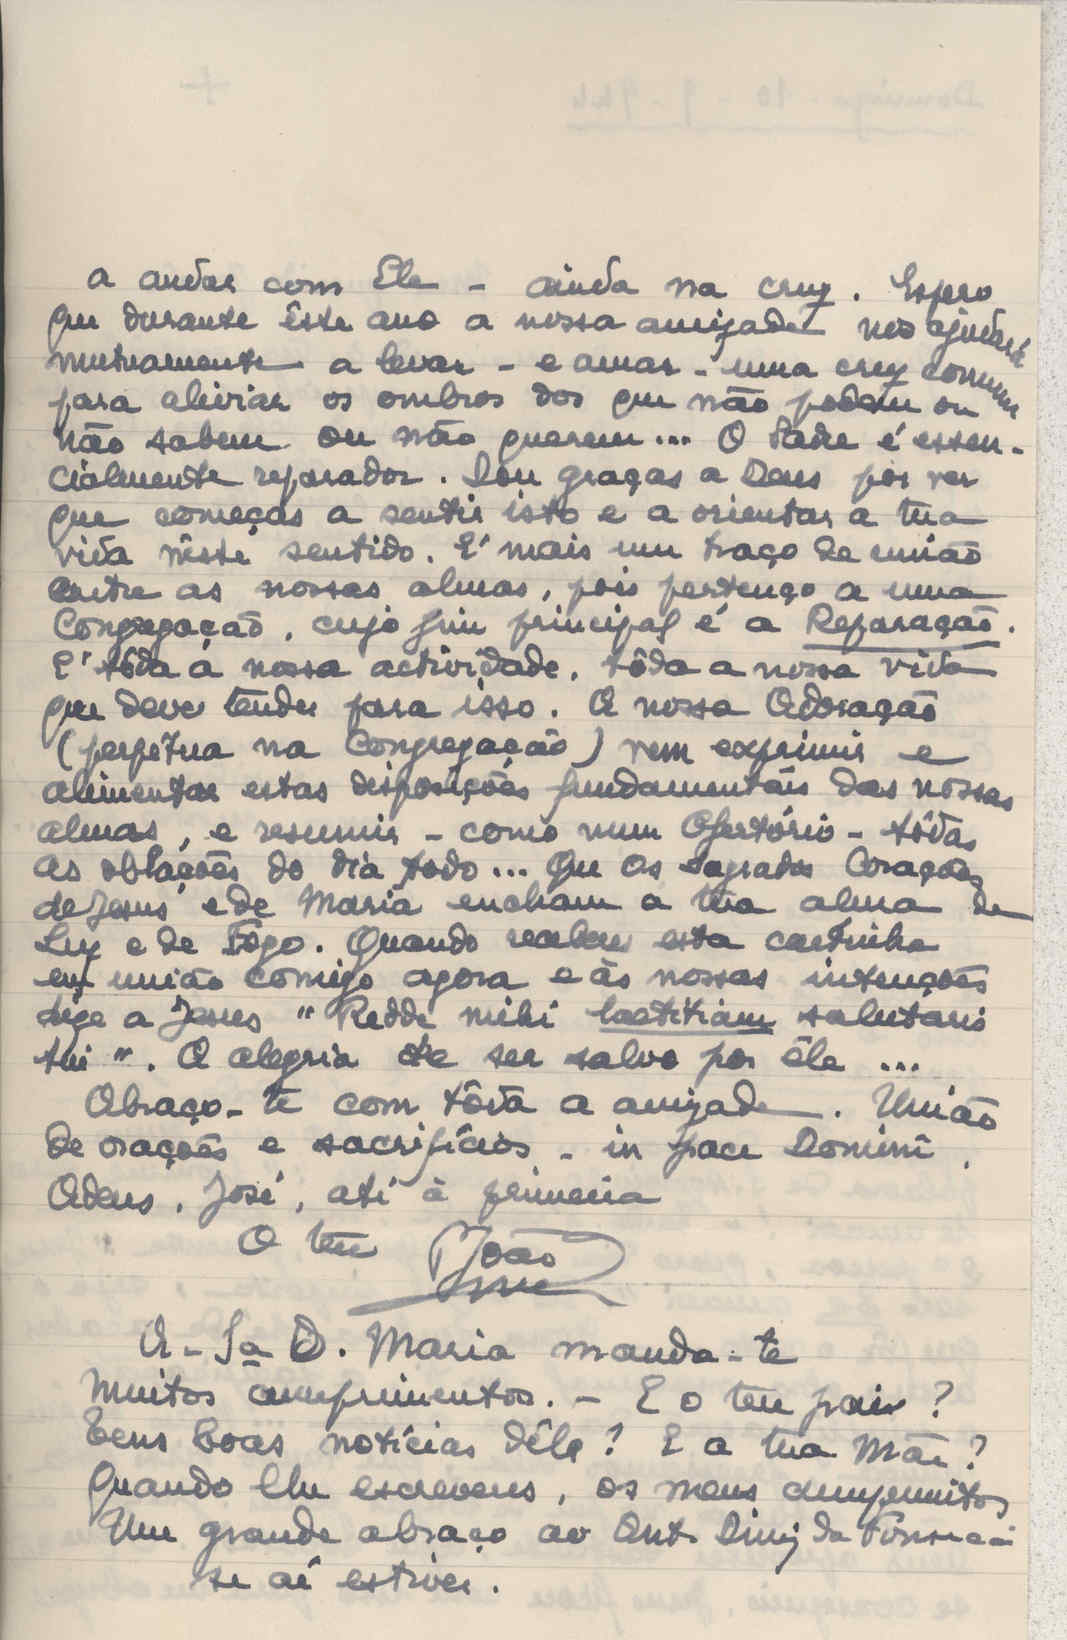 a andar com Ele - ainda na cruz. Espero
que durante êste ano a nossa amizade nos ajudará
mutuamente a levar - e amar - uma cruz comum
para aliviar os ombros dos que não podem ou
não sabem ou não querem... O Padre é essen-
cialmente reparador. Dou graças a Deus por ver
que começas a sentir isto e a orientar a tua
vida nêste sentido. E' mais um traço de união
entre as nossas almas, pois pertenço a uma
Congregação, cujo fim principal é a Reparação.
E' tôda a nossa actividade, tôda a nossa vida
que deve tender para isso. A nossa Adoração
(perpétua na Congregação) vem exprimir e
alimentar estas disposições fundamentais das nossas
almas, e resumir - como num Ofertório - tôdas
as oblações do dia todo... Que os Sagrados Corações
de Jesus e de Maria encham a tua alma de
Luz e de Fogo. Quando receberes esta cartinha
em união comigo agora e às nossas intenções
dize a Jesus "Redde mihi laetitiam salutaris
tui". A alegria de ser salvo por êle ...
Abraço-te com tôda a amizade. União
de orações e sacrifícios - in pace Domini.
Adeus, José, até à primeira
O teu João
A Sª D. Maria manda-te
muitos cumprimentos. - E o teu pai?
Tens boas notícias dêle? E a tua Mãe?
Quando lhe escreveres, os meus cumprimentos
Um grande abraço ao Ant. Diniz da Fonseca
se aí estiver.